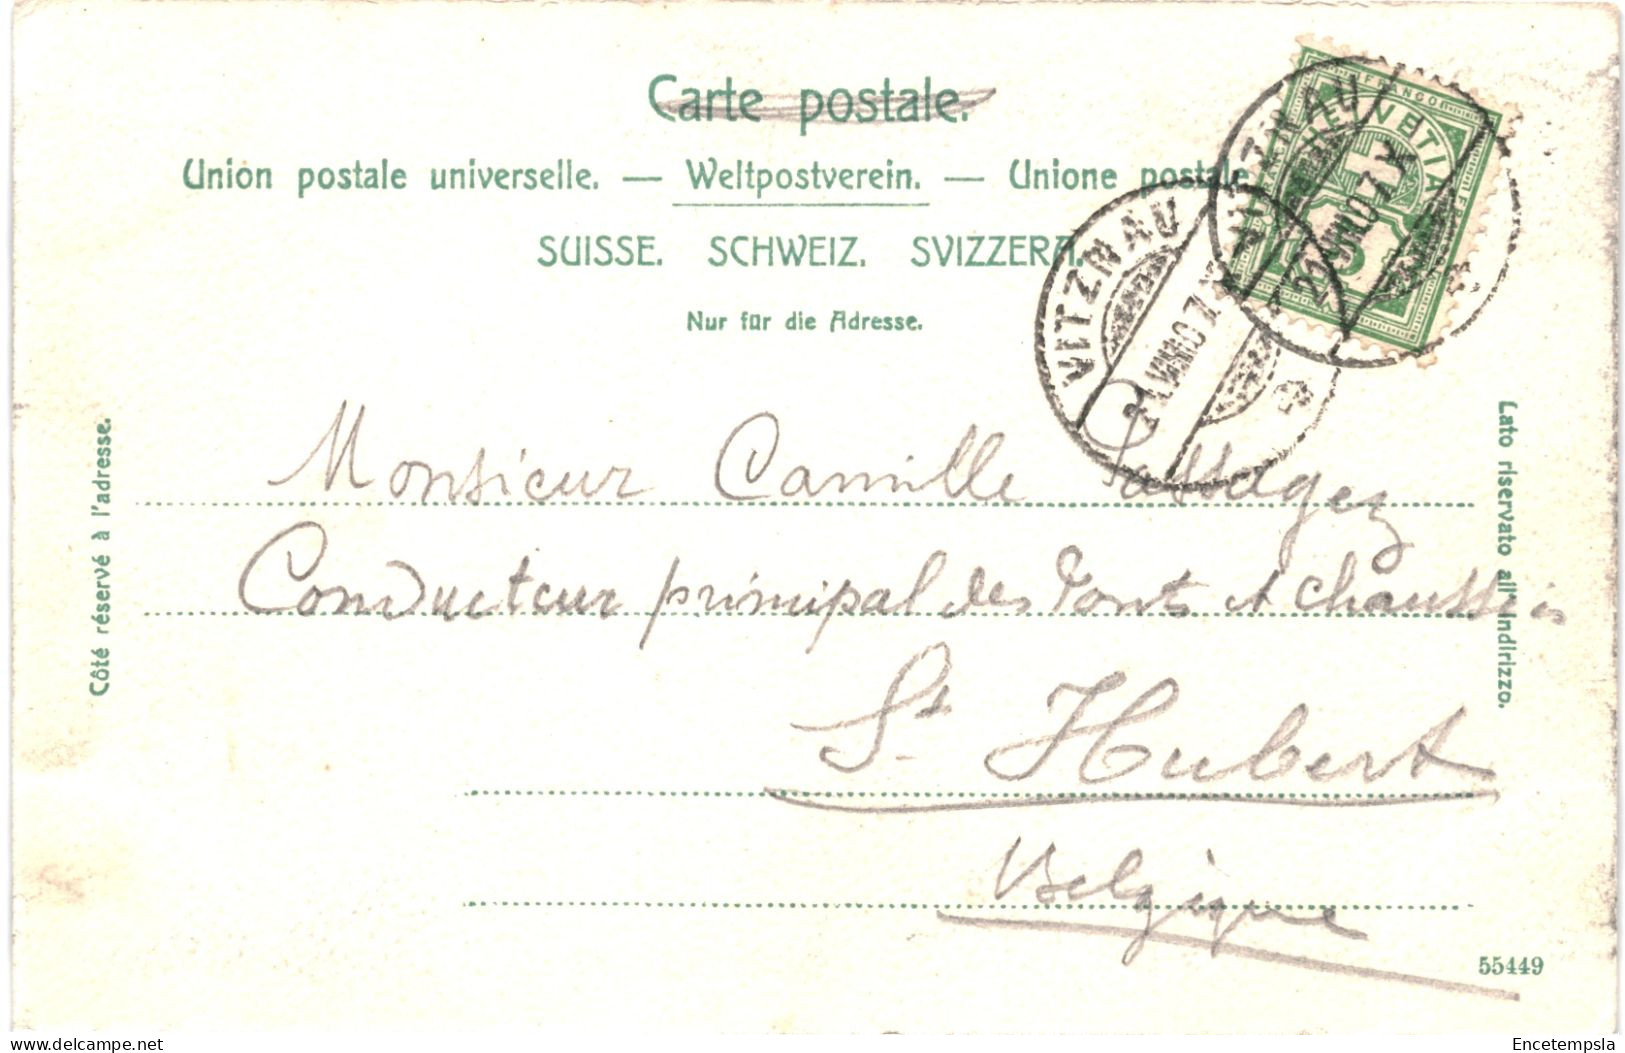 Carte postale.
Union postale universelle. — Weltpostverein. — Unione postale
SUISSE. SCHWEIZ. SVIZZERA.
Nur für die Adresse.
FRANCO
HELVETIA
5
VITZNAU
VITZNAU
Côté réservé à l'adresse.
Lato riservato all'indirizzo.
Monsieur Camille
Conducteur principal des Ponts et chaussées
St Hubert
Belgique
55449
Encetempsla